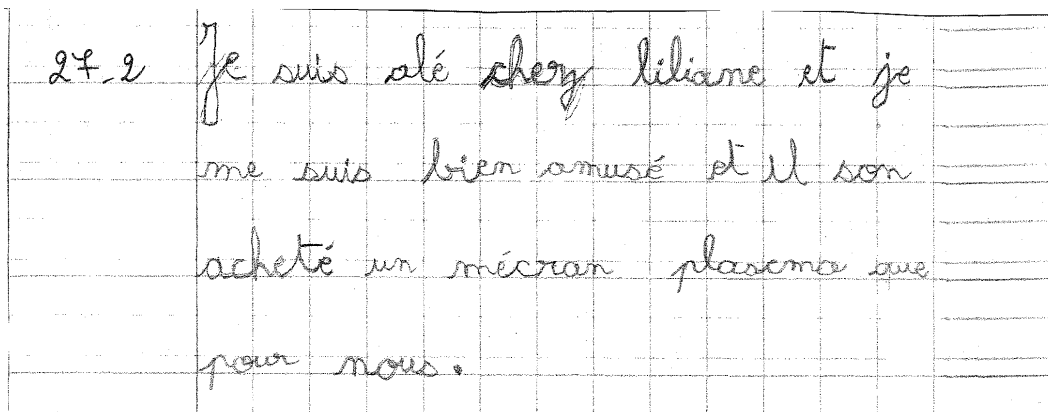 27-2 Je suis alé chez liliane et je
me suis bien amusé et il son
acheté un mécran plascma que
pour nous.